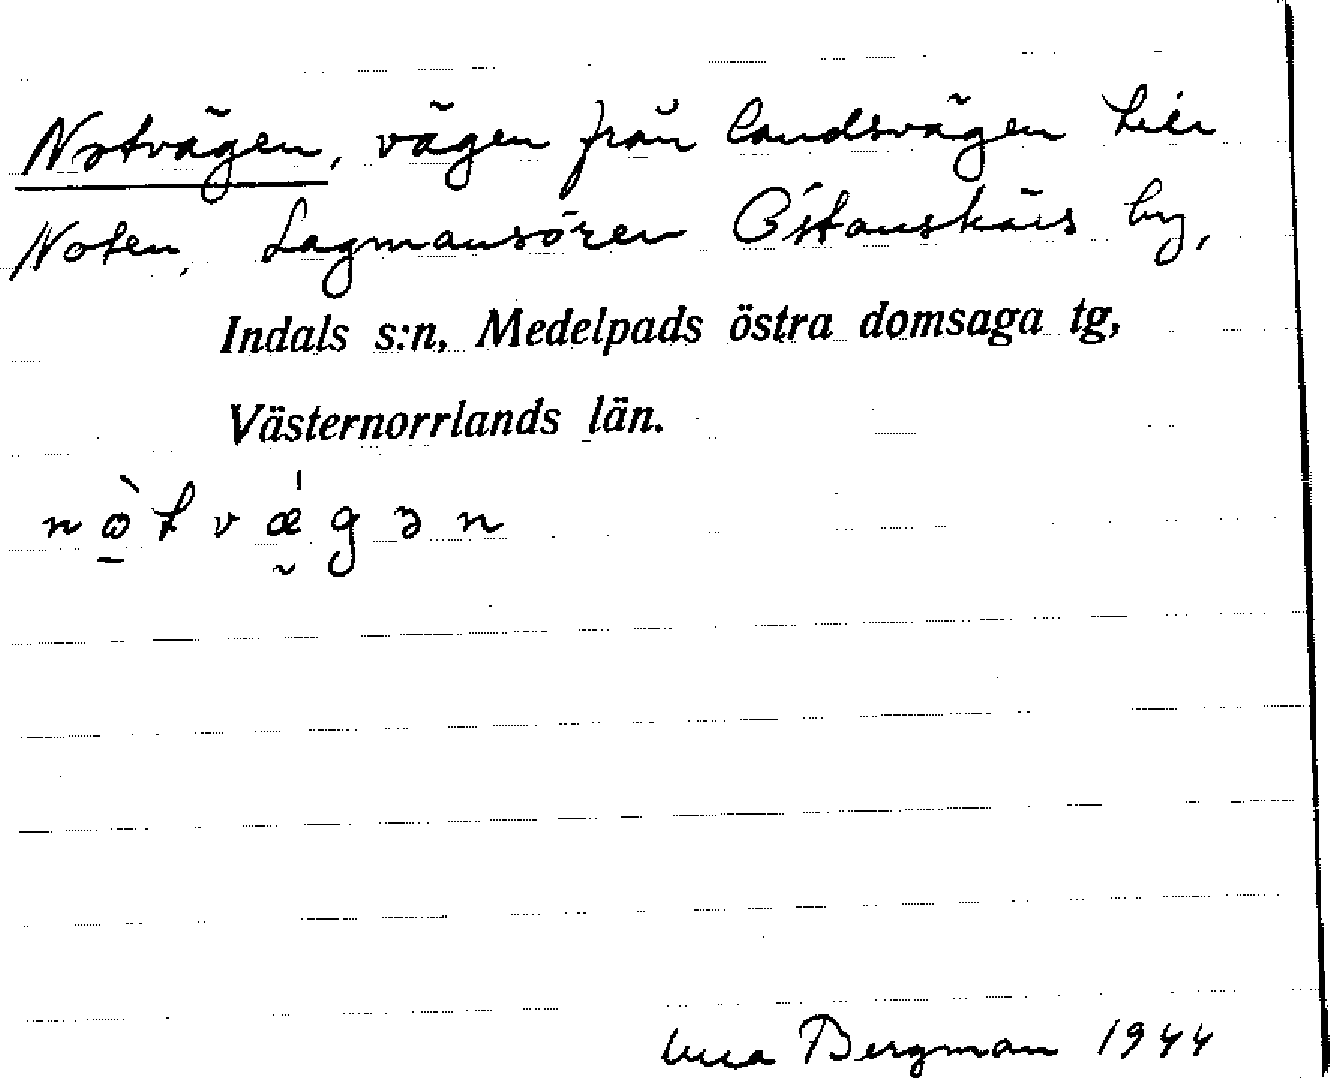 Notvägen, vägen från landsvägen till
Noten, Lagmansören Östanskärs by,
Indals s:n, Medelpads östra domsaga tg,
Västernorrlands län.
Bergman 1944